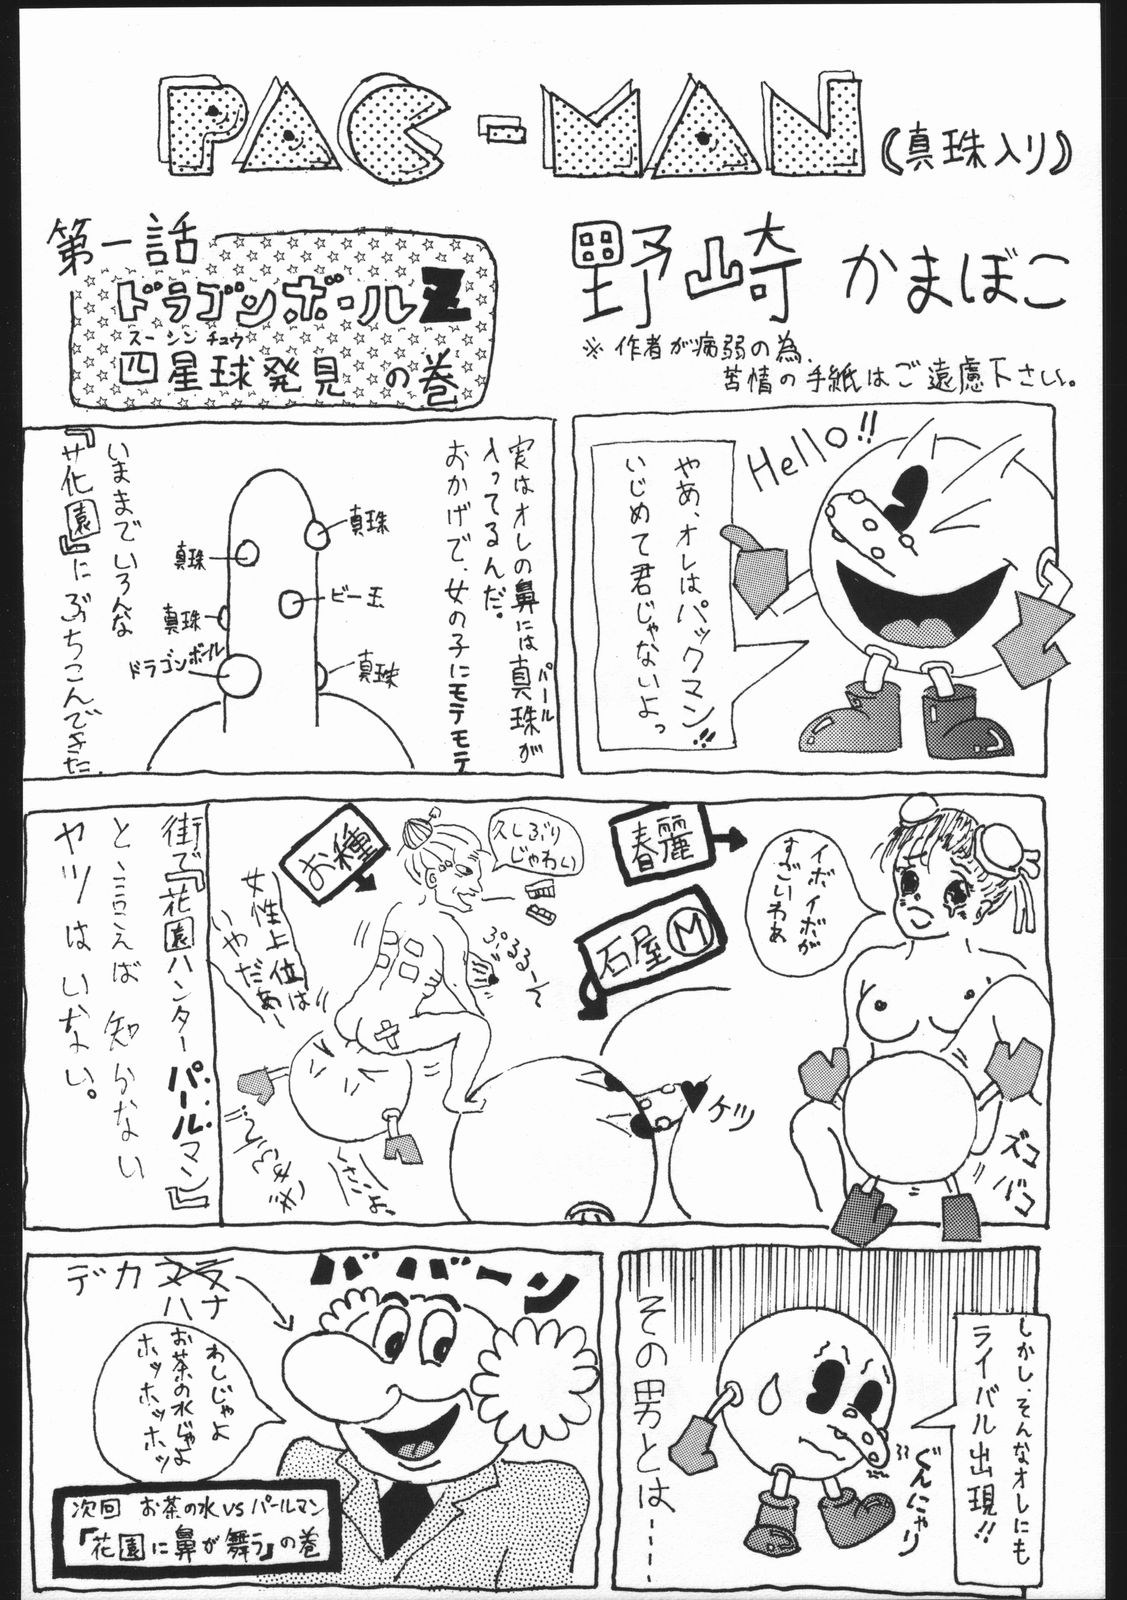 PAC-MAN
《真珠入り》
第一話
ドラゴンボールZ
スーシンチュウ
四星球発見の巻
野崎かまぼこ
※作者が病弱の為、
苦情の手紙はご遠慮下さい。
Hello!!
やあ、オレはパックマン!!
いじめて君じゃないよっ
実はオレの鼻には真珠が
パール
入ってるんだ。
おかげで、女の子にモテモテ
真珠
真珠
ビー玉
真珠
ドラゴンボール
真珠
いままでいろんな
『ザ花園』にぶちこんできた。
春麗
イボイボが
すごいわぁ
ズコ
バコ
石屋Ⓜ
ケツ
お種
久しぶり
じゃわい
女性上位は
いやだぁ
くさいよ
街で『花園ハンターパールマン』
と言えば知らない
ヤツはいない。
しかし、そんなオレにも
ライバル出現!!
ぐんにゃり
その男とは
ババーン
デカ
ハナ
わしじゃよ
お茶の水じゃよ
ホッホッホッ
次回 お茶の水VSパールマン
『花園に鼻が舞う』の巻